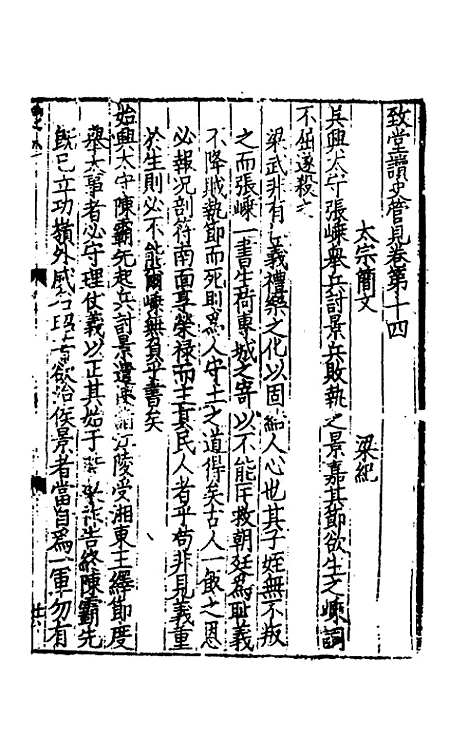 致堂讀史管見卷第十四
太宗簡文　梁紀
吳興太守張嵊舉兵討景兵敗執之景嘉其節欲生之嵊詞
不屈遂殺之
梁武非有仁義禮樂之化以固結人心也其子姪無不叛
之而張嵊一書生荷東城之寄以不能匡救朝廷為恥義
不降賊執節而死則為人守土之道得矣古人一飯之恩
必報況剖符南面享榮祿而主其民人者乎苟非見義重
於生則必不能爾嵊無負乎書矣
始興太守陳霸先起兵討景遣使詣江陵受湘東王繹節度
舉大事者必守理仗義以正其始于時梁祚告終陳霸先
既已立功嶺外威名昭著欲治侯景者當自為一軍勿有